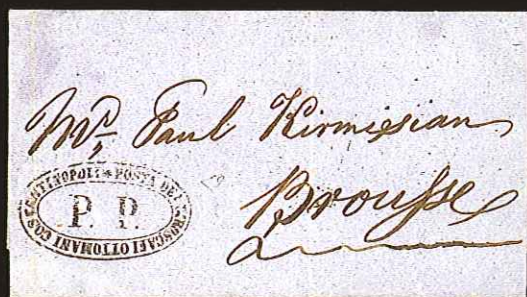 Mr. Paul Kirmissian
Brousse
COSTANTINOPOLI * POSTA DEI PIROSCAFI OTTOMANI
P. P.